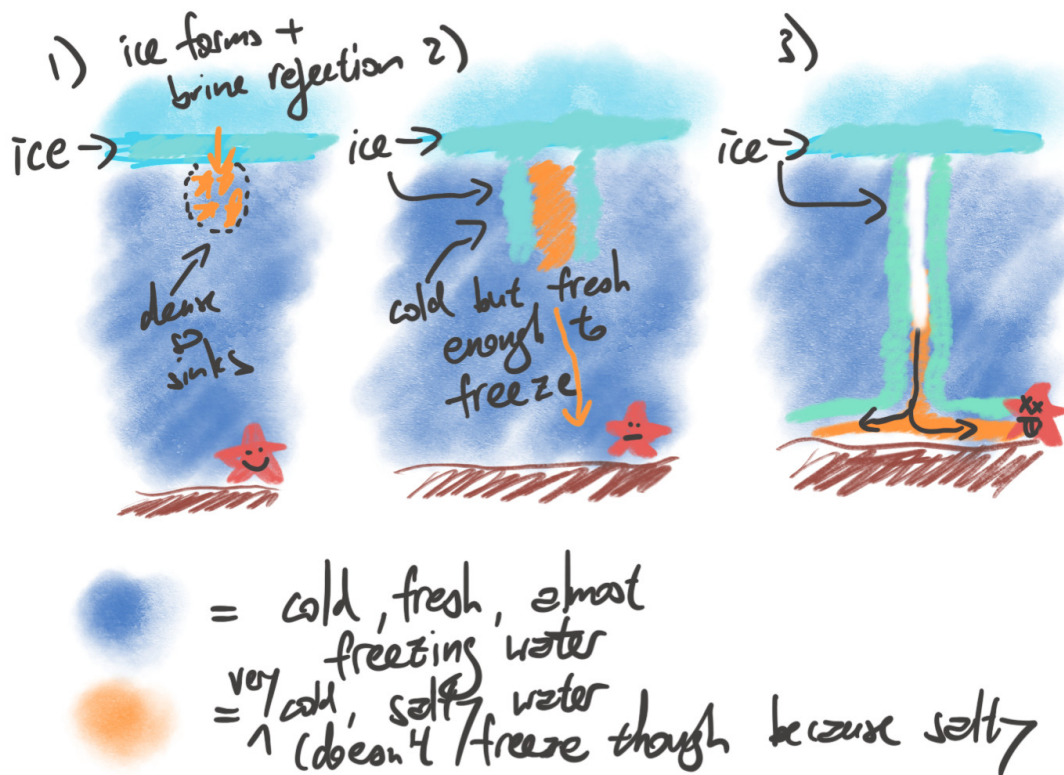 1) ice forms +
brine rejection
ice →
dense
so
sinks
2)
ice →
cold but fresh
enough to
freeze
3)
ice →
= cold, fresh, almost
freezing water
= very cold, salty water
(doesn't freeze though because salty